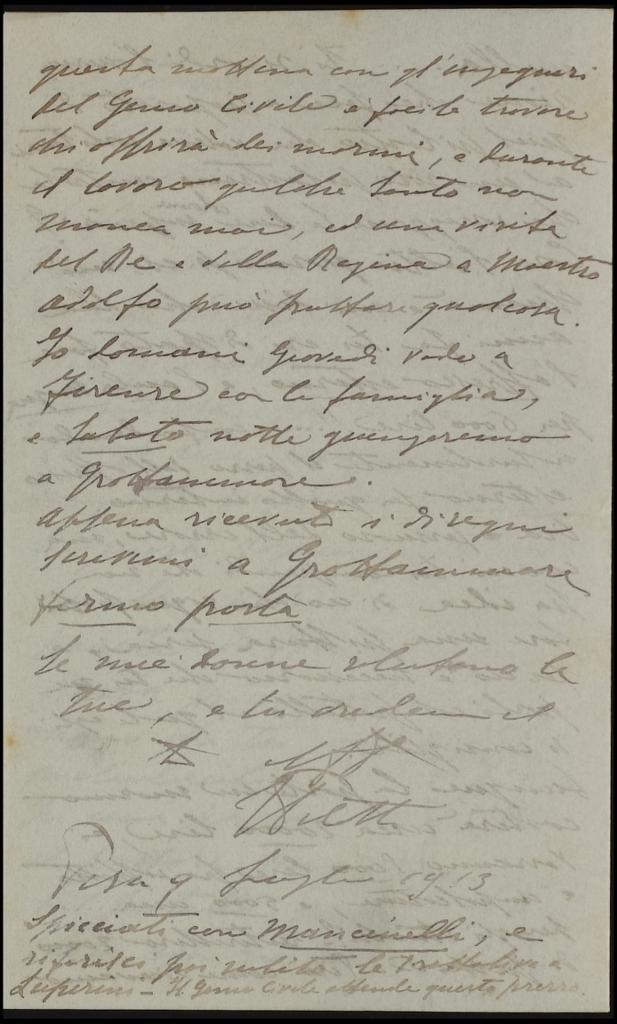 questa mattina con gl'ingegneri
del Genio Civile e facile trovare
chi offrirà dei marmi, e durante
il lavoro qualche Santo non
manca mai, ed una visita
del Re e della Regina a Maestro
Adolfo può fruttare qualcosa.
Io domani Giovedì vado a
Firenze con la famiglia,
e Sabato notte giungeremo
a Grottammare.
Appena ricevuti i disegni
scrivimi a Grottammare
fermo posta
Le mie donne salutano le
tue, e tu credimi il
t aff
Pisa 9 Luglio 1913
Spicciati con Mancinelli, e
riferisci poi subito le trattative a
Luperini - Il Genio Civile attende questo prezzo.